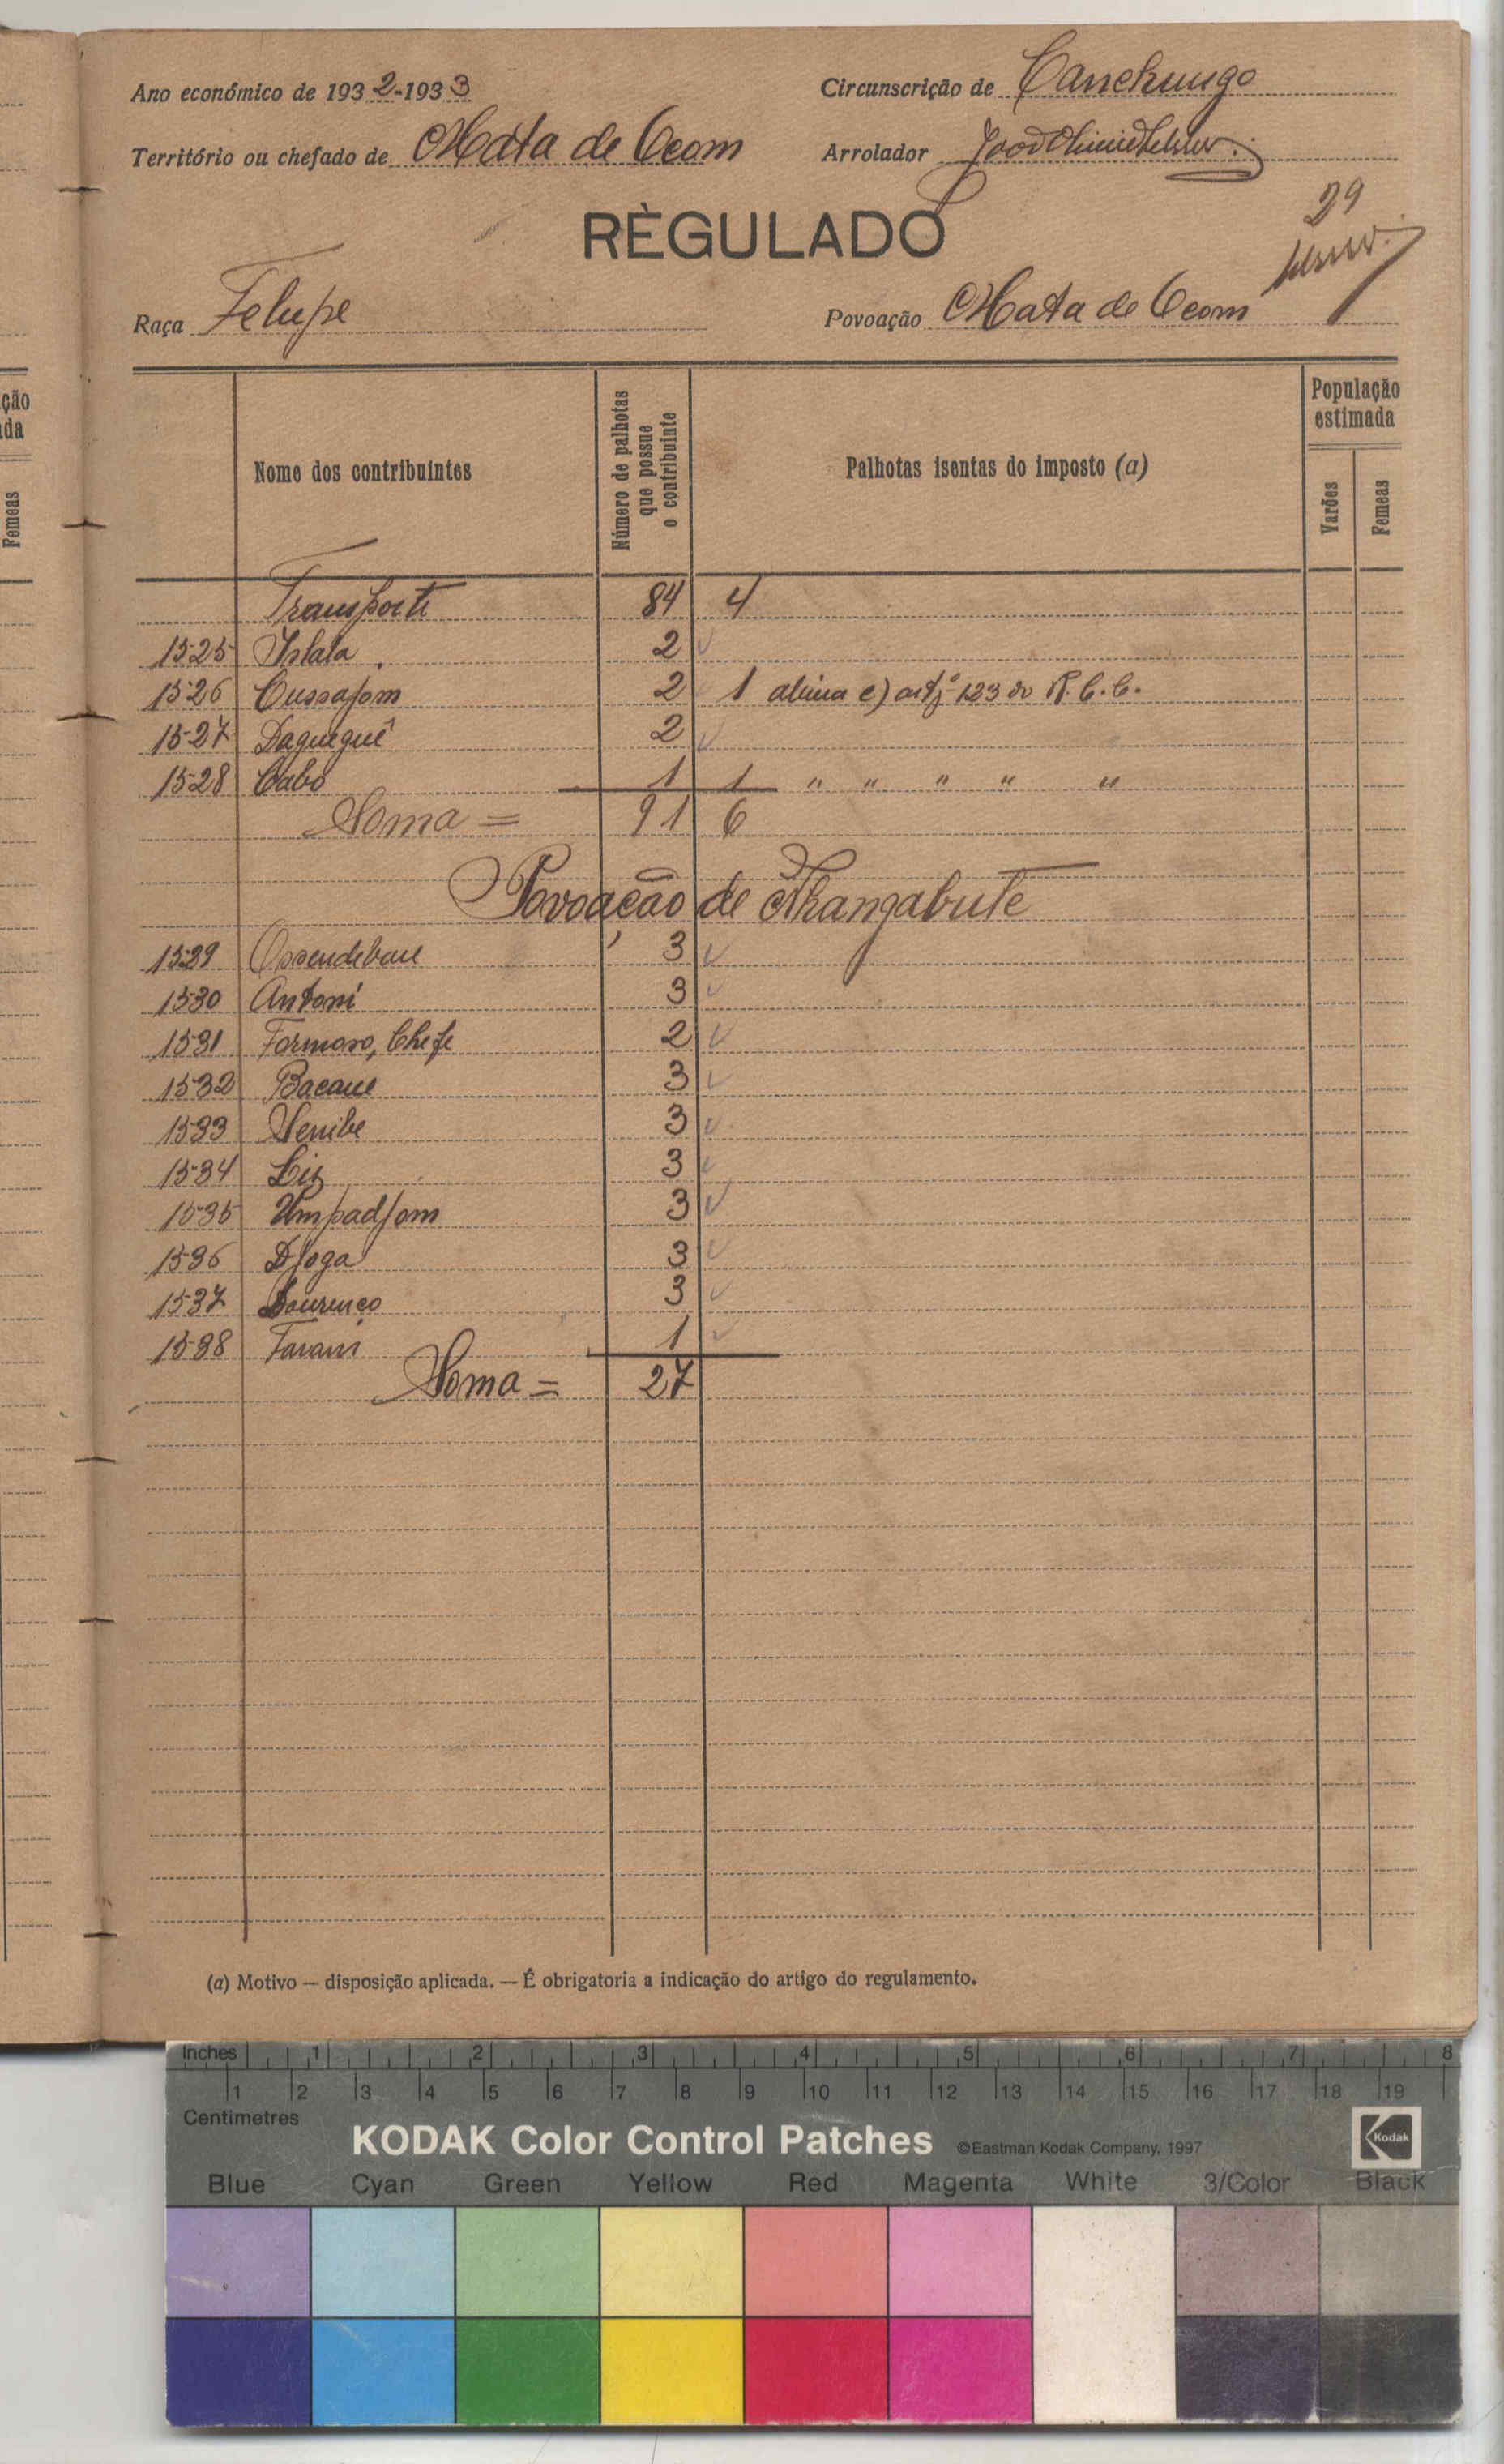 ção
da
Femeas
Ano económico de 1932-1933
Circunscrição de Canchungo
Território ou chefado de Mata de Ucom
Arrolador João
29
RÉGULADO
Raça Felupe
Povoação Mata de Ucom
Nome dos contribuintes
Número de palhotas que possue o contribuinte
Palhotas isentas do imposto (a)
População estimada
Varões
Femeas
Transporte 84 4
1525 Islata 2
1526 Cussajom 2 1 alinea e) artº 123 do R.C.C.
1527 Daguequê 2
1528 Cabo 1 1 " " " " "
Soma = 91 6
Povoação de Nhangabute
1529 Ossendebane 3
1530 Antoni 3
1531 Formoso, Chefe 2
1532 Bacane 3
1533 Senibe 3
1534 Liz 3
1535 Umpadjom 3
1536 Djoga 3
1537 Lourenço 3
1538 Favani 1
Soma = 27
(a) Motivo — disposição aplicada. — É obrigatoria a indicação do artigo do regulamento.
Inches 1 2 3 4 5 6 7 8
1 2 3 4 5 6 7 8 9 10 11 12 13 14 15 16 17 18 19
Centimetres
KODAK Color Control Patches ©Eastman Kodak Company, 1997 Kodak
Blue Cyan Green Yellow Red Magenta White 3/Color Black